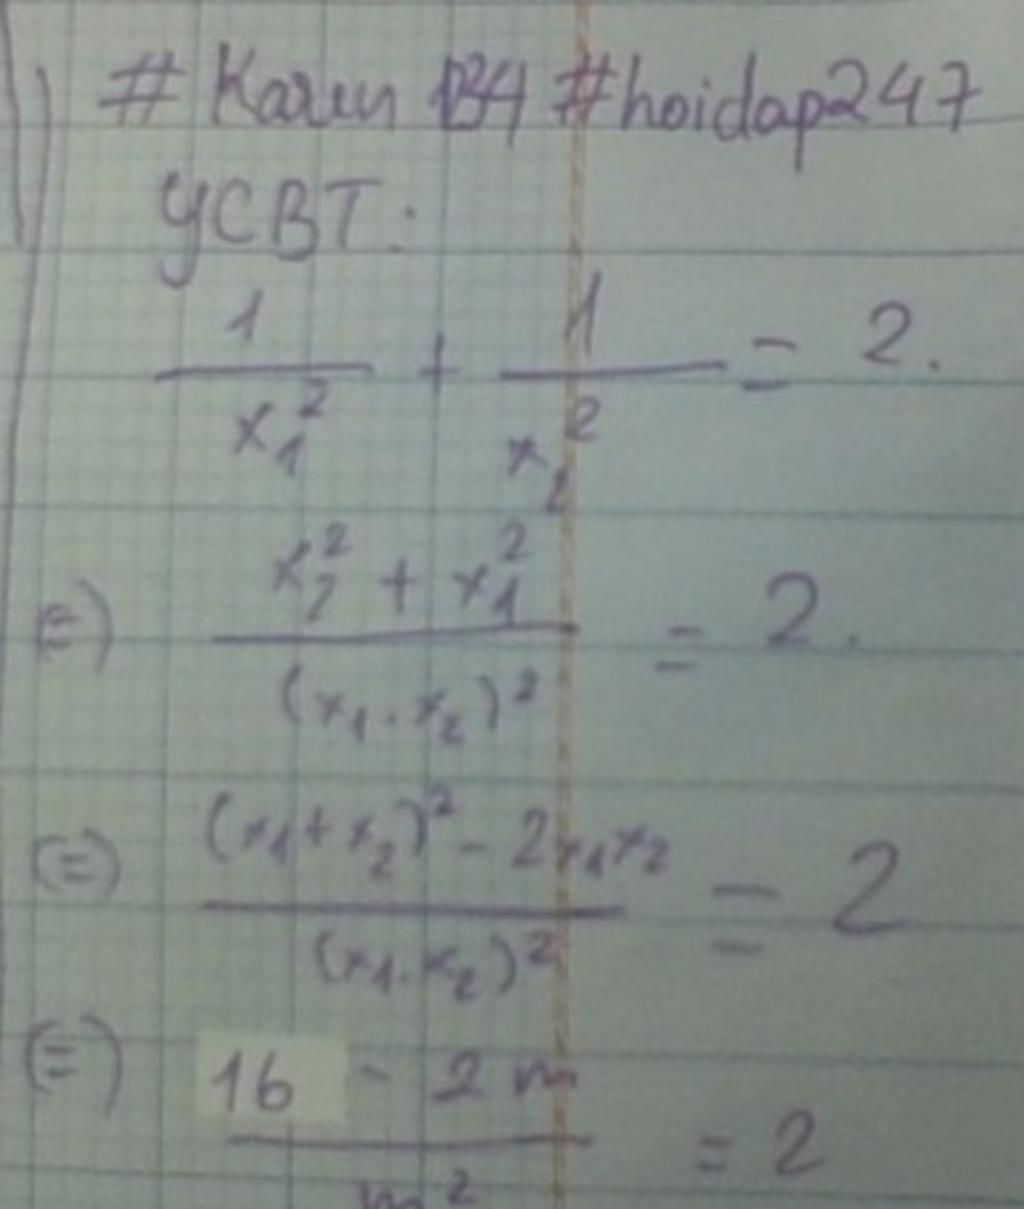 # Karen 1234 #hoidap247
YCBT:
1/x₁² + 1/x₂² = 2.
⇔) (x₂² + x₁²)/(x₁.x₂)² = 2.
(=) ((x₁+x₂)² - 2x₁x₂)/(x₁.x₂)² = 2
(=) (16 - 2m)/m² = 2